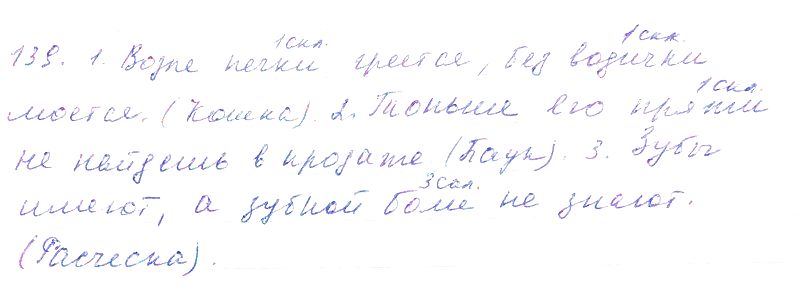 1скл. 1скл.
139. 1. Возле печки греется, без водички
1скл.
моется. (Кошка). 2. Тоньше его пряжи
не найдешь в продаже (Паук). 3. Зубы
3скл.
имеют, а зубной боли не знают.
(Расческа).